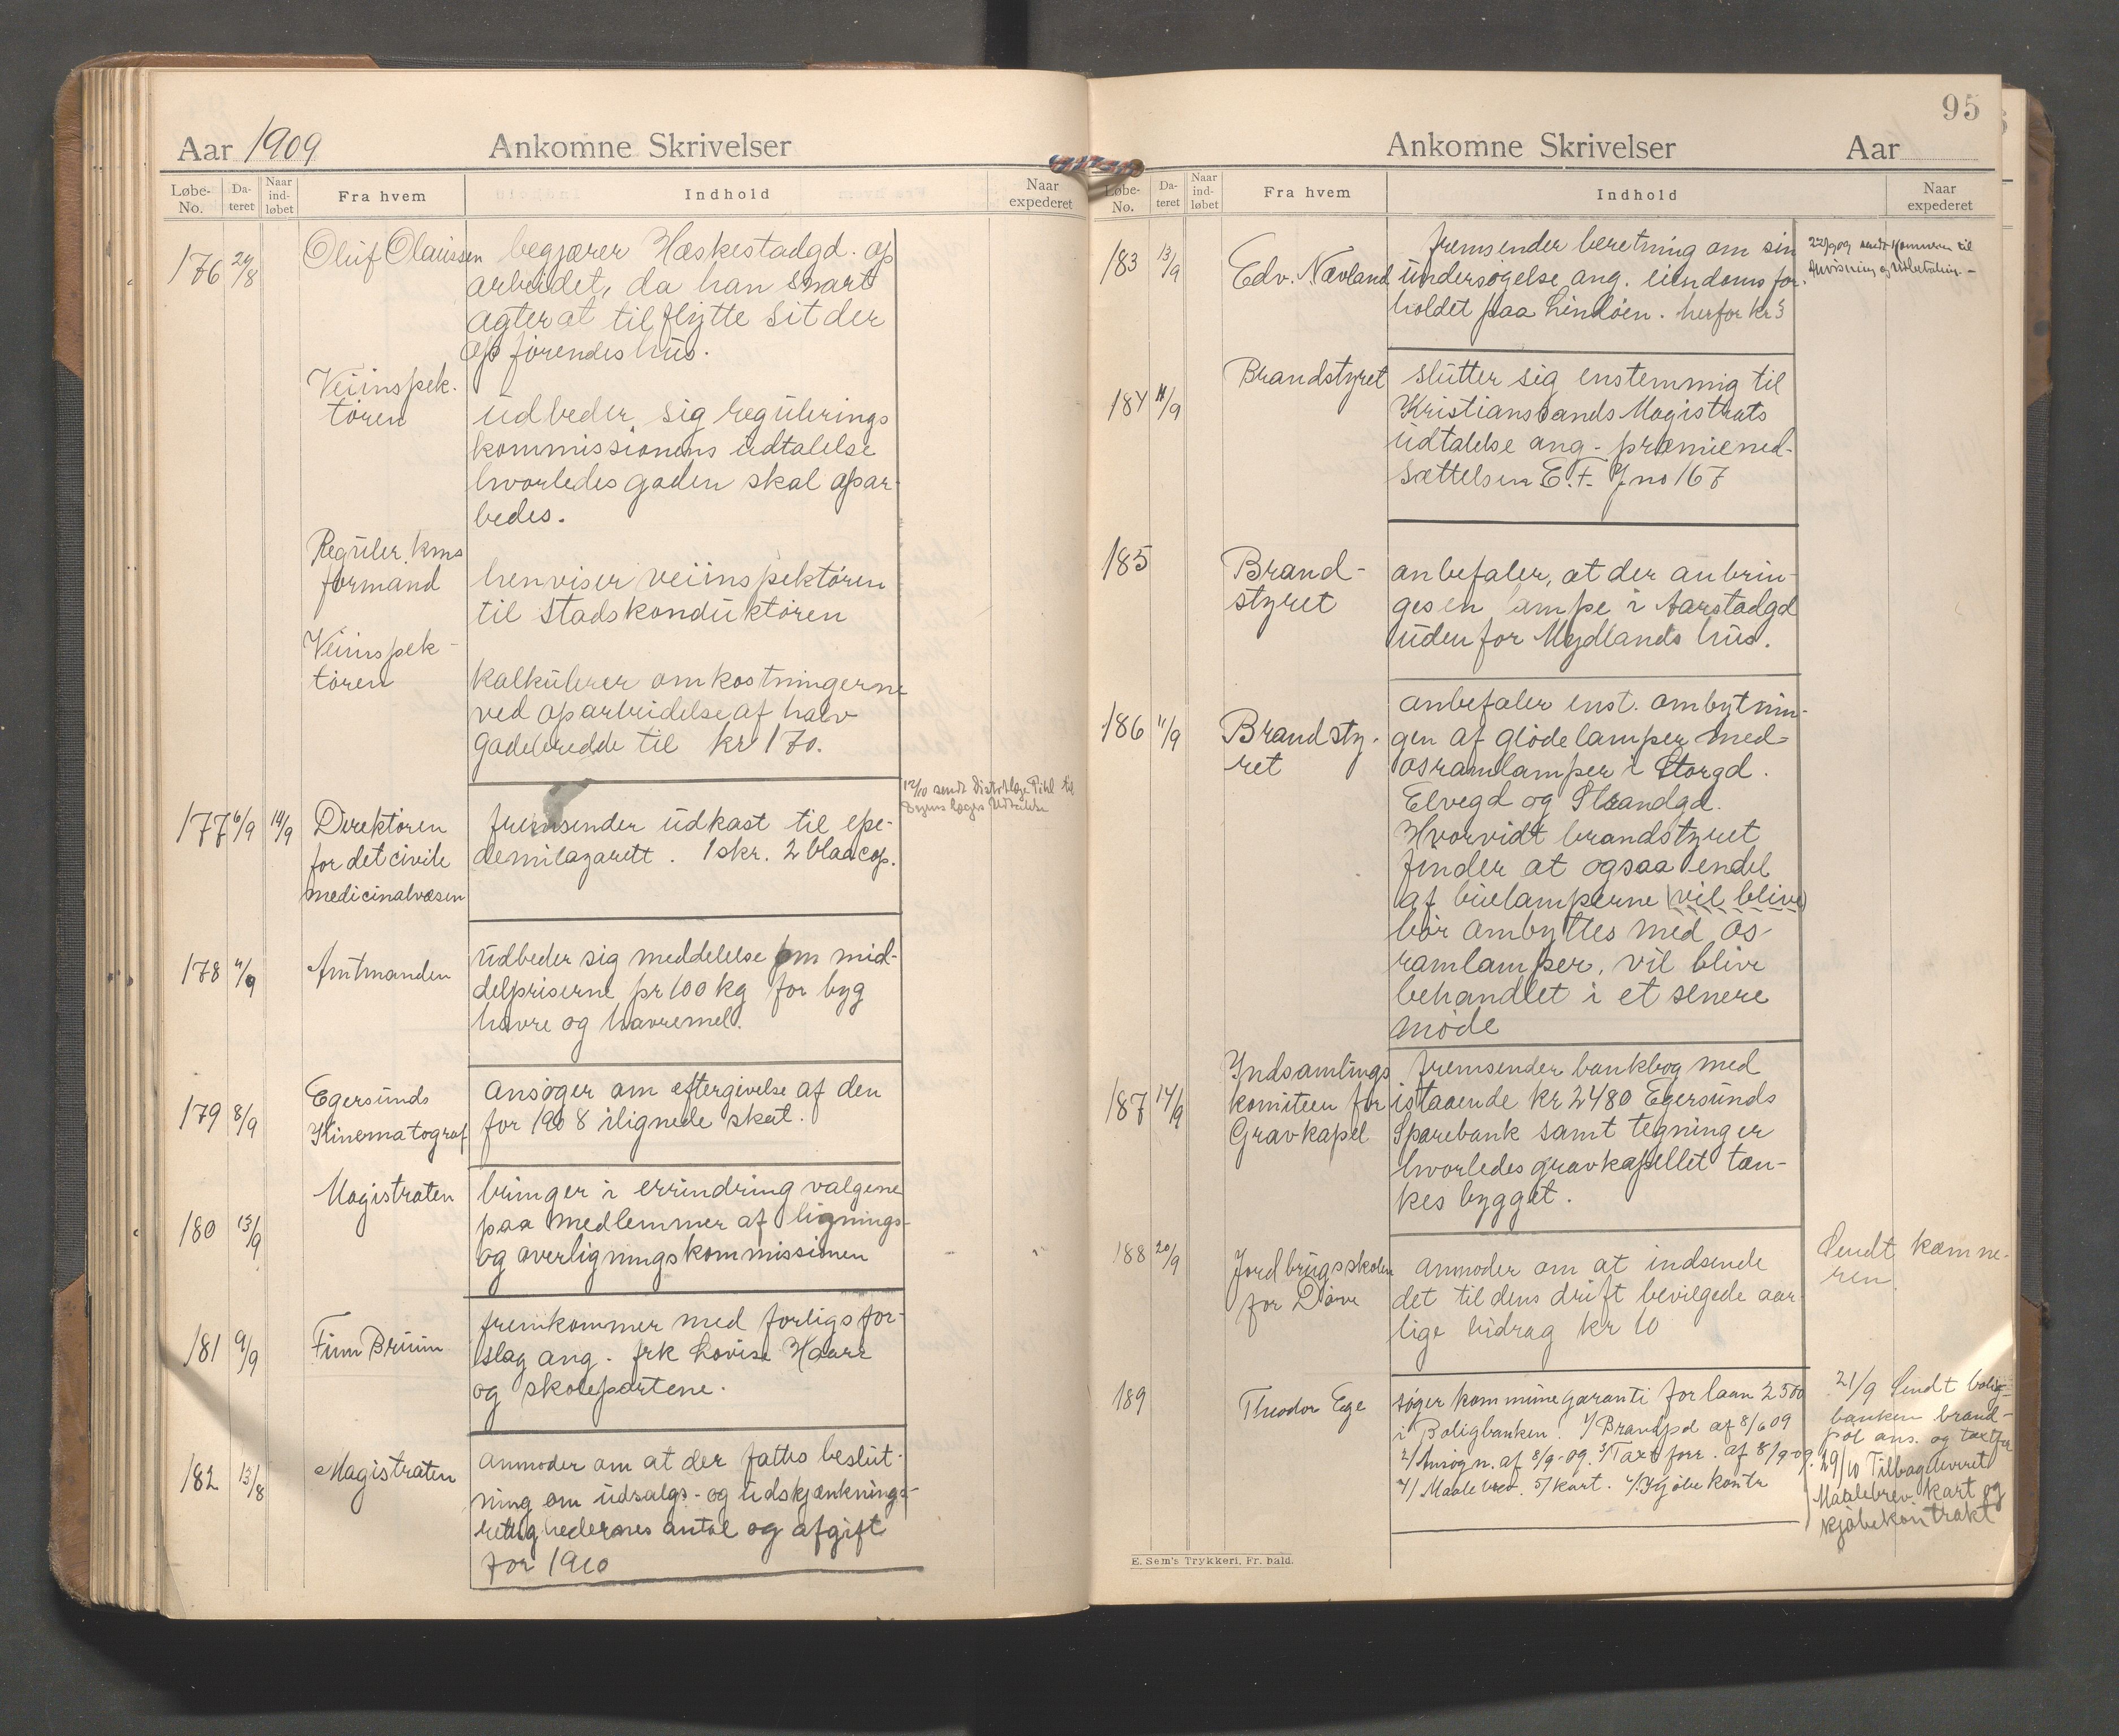 Aar 1909
Ankomne Skrivelser
Løbe-No.
Da-teret
Naar ind-løbet
Fra hvem
Indhold
Naar expederet
176 24/8 Oluf Olaussen begjærer Hæskestadgd. op
arbeidet, da han snart
agter at tilflytte sit der
opførendes hus.
Veiinspek-
tøren
udbeder sig regulerings
kommissionens udtalelse
hvorledes gaden skal opar-
bedes.
Reguler. kms
formand
henviser veiinspektøren
til Stadskonduktøren
Veiinspek-
tøren
kalkulerer omkostningerne
ved oparbeidelse af halv
gadebredde til kr 170.
177 6/9 14/9 Direktøren
for det civile
medicinalvæsen
fremsender udkast til epe-
demilazarett. 1 skr. 2 blaacop.
12/10 sendt Distriktslæge Pihl til
178 11/9 Amtmanden
udbeder sig meddelelse om mid-
delpriserne pr 100 kg for byg
havre og havremel.
179 8/9 Egersunds
Kinematograf
ansøger om eftergivelse af den
for 1908 ilignede skat.
180 13/9 Magistraten
bringer i erindring valgene
paa medlemmer af lignings-
og overligningskommissionen
181 9/9 Finn Bruun
fremkommer med forligsfor-
slag ang. frk Lovise Haarr
og skoleportene.
182 13/8 Magistraten
anmoder om at der fattes beslut-
ning om udsalgs- og udskjænknings-
rettighedernes antal og afgift
for 1910
95
Ankomne Skrivelser
Aar
Løbe-No.
Da-teret
Naar ind-løbet
Fra hvem
Indhold
Naar expederet
183 13/9 Edv. Nævland
fremsender beretning om sin
undersøgelse ang. eiendomsfor-
holdet paa Lindøen. herfor kr 3
22/9 09 sendt Kæmneren til
Anvisning og Udbetaling -
184 11/9 Brandstyret
slutter sig enstemmig til
Kristianssands Magistrats
udtalelse ang. præmiened-
sættelsen E.F. Jno 167
185 Brand-
styret
anbefaler, at der anbrin-
ges en lampe i Aarstadgd
udenfor Mydlands hus.
186 11/9 Brandsty-
ret
anbefaler enst. ombytnin-
gen af glødelamper med
osramlamper i Storgd.
Elvegd og Strandgd.
Hvorvidt brandstyret
finder at ogsaa endel
af buelamperne (vil blive)
bør ombyttes med os-
ramlamper, vil blive
behandlet i et senere
møde
187 14/9 Indsamlings
komiteen for
Gravkapel
fremsender bankbog med
istaaende kr 2480 Egersunds
Sparebank samt tegninger
hvorledes gravkapellet tæn-
kes bygget.
188 20/9 Jordbrugsskolen
for Døve
anmoder om at indsende
det til dens drift bevilgede aar-
lige bidrag kr 10
Sendt kæmne-
ren
189 Theodor Ege
søger kommunegaranti for laan 2500
i Boligbanken. 1/ Brandpol af 8/6 09
2/ Ansøgn. af 8/9-09. 3/ Taxt forr. af 8/9-09.
4/ Maalebrev. 5/ kart. 6/ Kjøbekontr
21/9 Sendt bolig-
banken brand-
pol ans. og taxtfor
29/10 Tilbageleveret
Maalebrev kart og
kjøbekontrakt
E. Sem's Trykkeri, Fr. hald.